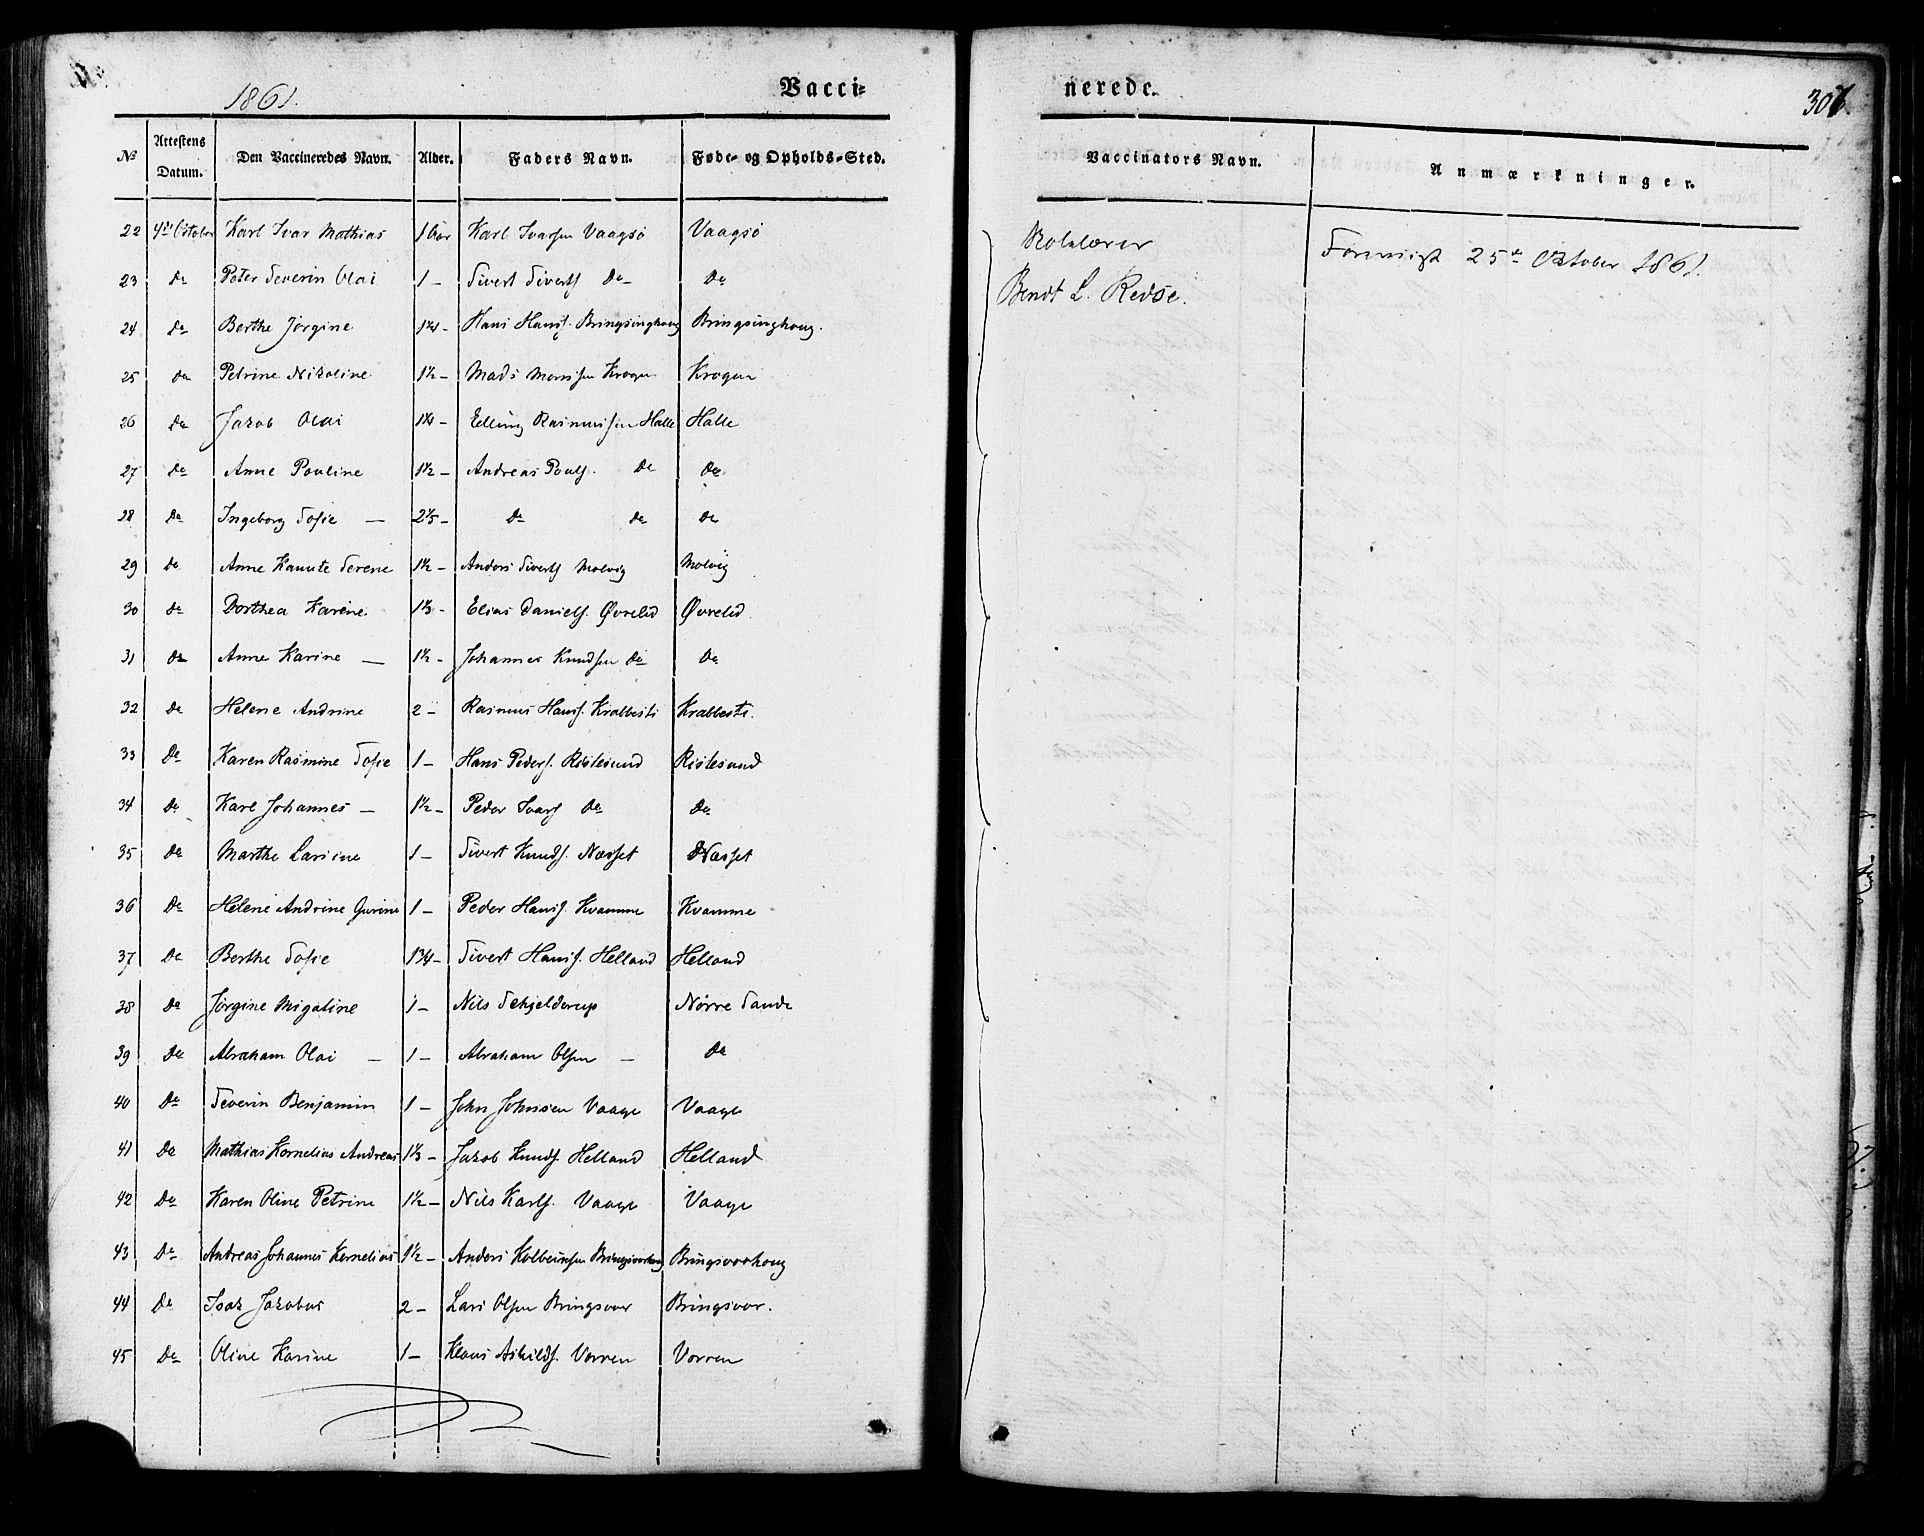 1861.
Vacci-
№ Attestens Datum. Den Vaccineredes Navn. Alder. Faders Navn. Føde- og Opholds-Sted.
22 4de October Karl Ivar Mathias 1 aar Karl Ivarsen Vaagsø Vaagsø
23 Do Peter Severin Olai 1 - Sivert Siverts. Do - Do
24 Do Berthe Jørgine 1 1/4 - Hans Hans. Bringsinghoug Bringsinghoug.
25 Do Petrine Nikoline 1 1/2 - Mads Monssen Krogen Krogen
26 Do Jakob Olai 1 1/4 - Elling Rasmussen Halle Halle
27 Do Anne Pouline 1 1/2 - Andreas Pouls. Do Do
28 Do Ingeborg Sofie — 2 1/3 - Do Do Do
29 Do Anne Kanute Serene 1 1/2 - Anders Siverts Molvig Molvig
30 Do Dorthea Karine 1 1/3 - Elias Daniels. Øvrelid Øvrelid
31 Do Anne Karine — 1 1/2 - Johannes Knudsen Do Do
32 Do Helene Andrine 2 - Rasmus Hans. Krabbesti Krabbesti.
33 Do Karen Rasmine Sofie 1 - Hans Peders. Ristesund Ristesund
34 Do Karl Johannes — 1 1/2 - Peder Ivars Do Do
35 Do Marthe Larsine 1 - Sivert Knuds. Næsset Næsset
36 Do Helene Andrine Gurine 1 - Peder Hans. Kvamme Kvamme
37 Do Berthe Sofie 1 3/4 - Sivert Hans. Helland Helland
38 Do Jørgine Migaline 1 - Nils Schjelderup Nørre Sande
39 Do Abraham Olai — 1 - Abraham Olsen — Do
40 Do Severin Benjamin 1 - John Johnsen Vaage Vaage
41 Do Mathias Kornelius Andreas 1 1/3 - Jakob Knuds. Helland Helland
42 Do Karen Oline Petrine 1 1/2 - Nils Karls. Vaage Vaage
43 Do Andreas Johannes Kornelius 1 1/2 - Anders Kolbeinsen Bringsvorhoug Bringsvorhoug
44 Do Isak Jakobus 2 - Lars Olsen Bringsvor Bringsvor.
45 Do Oline Karine 1 - Klaus Askilds. Vorren Vorren
nerede.
Vaccinators Navn. Anmærkninger.
Bendt L. Redse. 25de Oktober 1861.